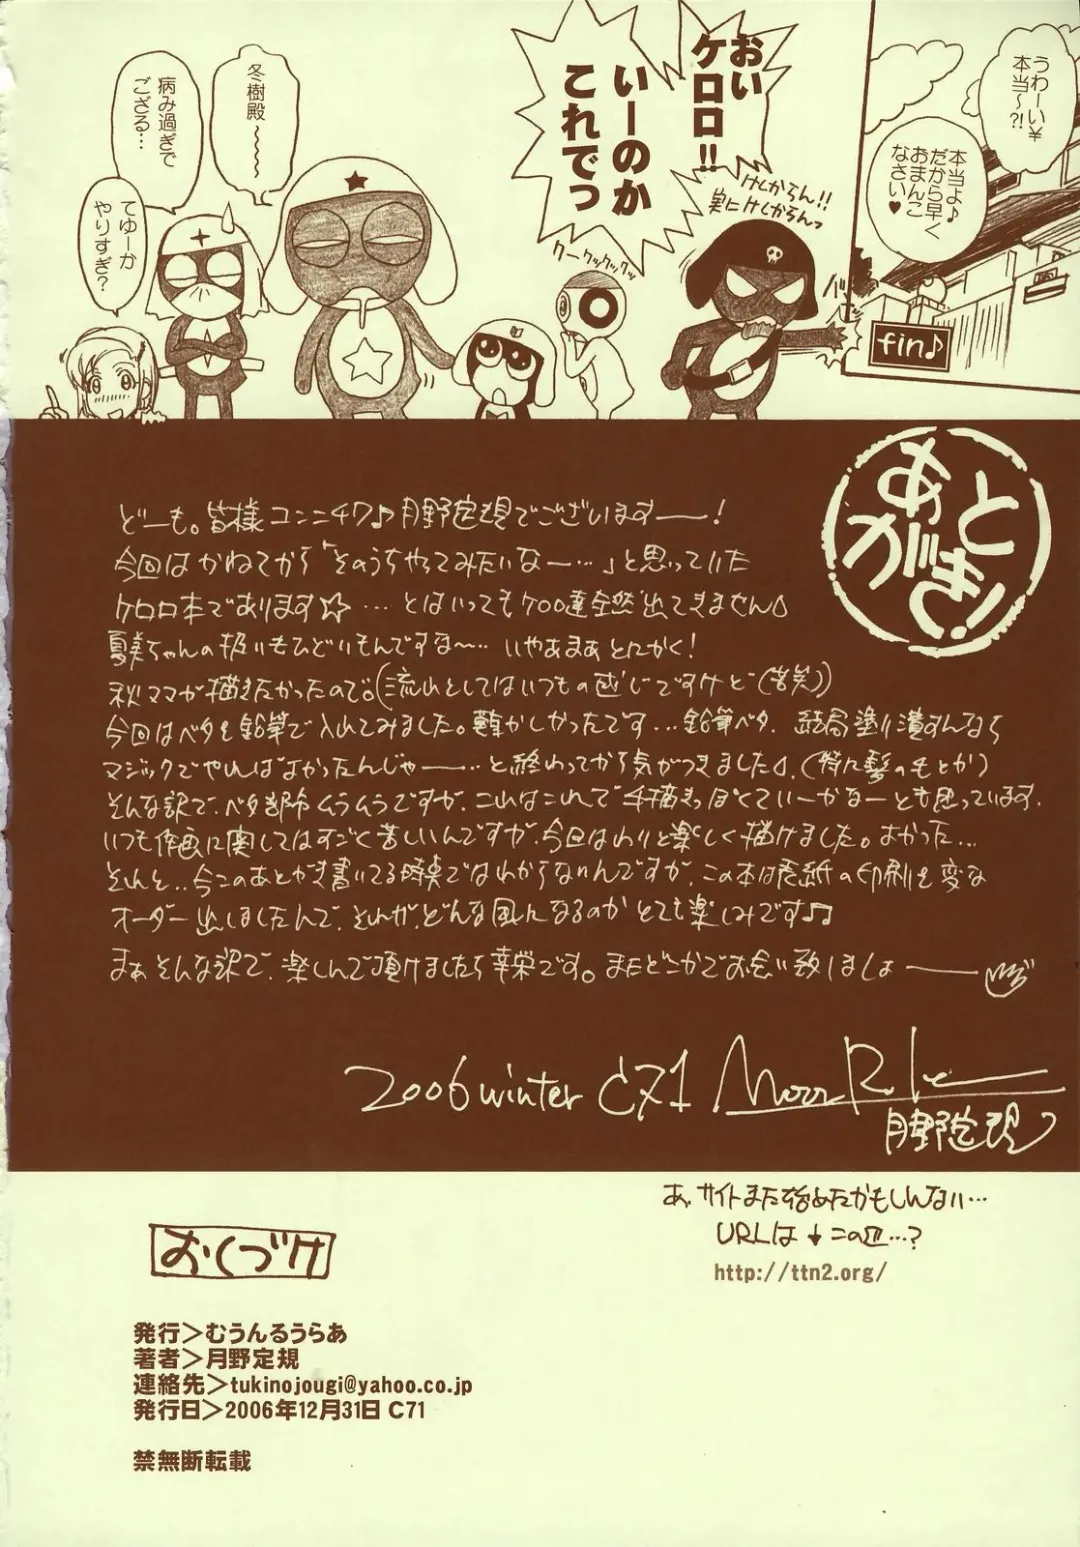 おい
ケロロ!!
いーのか
これでっ
けしからん!!
実にけしからんっ
クークックックッ
fin♪
冬樹殿
〜〜〜〜
病み過ぎで
ござる…
てゆーか
やりすぎ?
あとがき!
どーも。皆様コンニチワ♪月野定規でございますーー!
今回はかねてから「そのうちやってみたいなー…」と思っていた
ケロロ本であります☆ …とはいってもケロロ達全然出てきません
夏美ちゃんの扱いもひどいもんですな〜… いやあまぁとにかく!
秋ママが描きたかったので。(流れとしてはいつもの感じですけど(苦笑))
今回はベタを鉛筆で入れてみました。難かしかったです…鉛筆ベタ。結局塗り潰すんなら
マジックでやればよかったんじゃーー…と終わってから気がつきました。(特に髪の毛とか)
そんな訳で、ベタ部分ムラムラですが、これはこれで手描きっぽくていーかなーとも思っています。
いつも作画に関してはすごく苦しいんですが、今回はわりと楽しく描けました。よかった…
それと‥今このあとがき書いてる時点ではわからないんですが、この本は表紙の印刷を変な
オーダー出しましたんで、それが、どんな風になるのかとても楽しみです♪
まぁそんな訳で、楽しんで頂けましたら幸栄です。またどこかでお会い致しましょーー
2006 winter C71
月野定規
あ、サイトまた始めたかもしんない…
URLは↓この辺…?
http://ttn2.org/
おくづけ
発行＞むうんるうらあ
著者＞月野定規
連絡先＞tukinojougi@yahoo.co.jp
発行日＞2006年12月31日 C71
禁無断転載